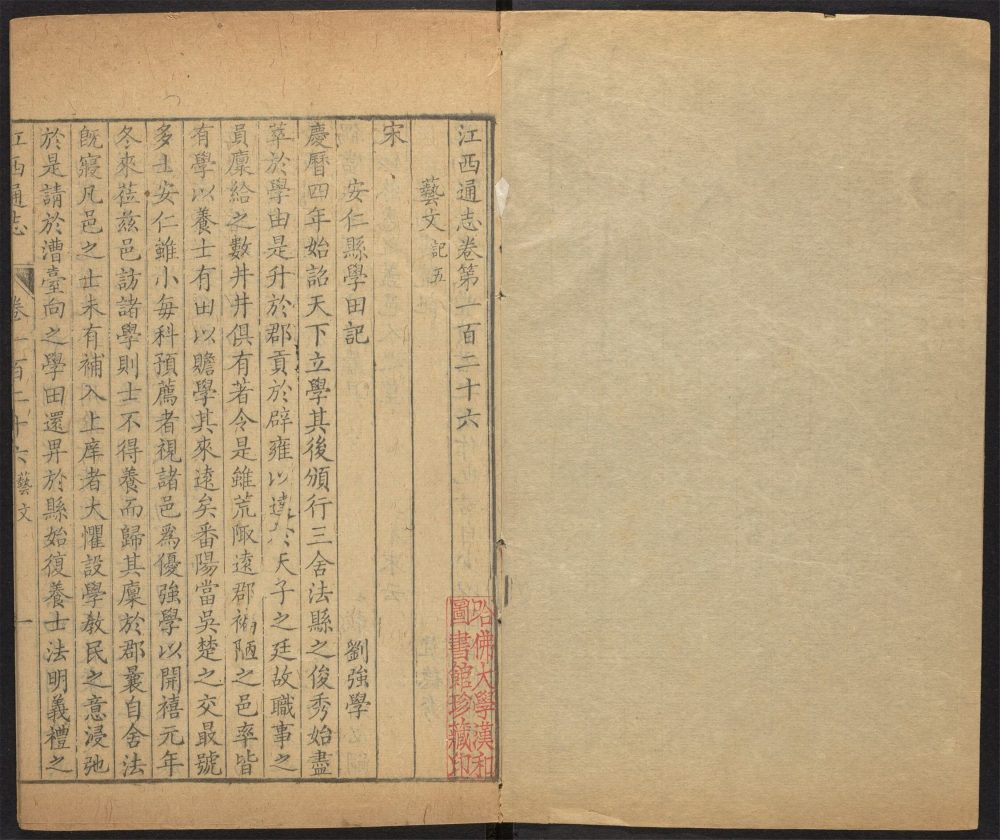 江西通志卷第一百二十六
藝文記五
宋
安仁縣學田記 劉強學
慶曆四年始詔天下立學其後頒行三舍法縣之俊秀始盡
萃於學由是升於郡貢於辟雍以達於天子之廷故職事之
員廩給之數井井俱有著令是雖荒陬遠郡褊陋之邑率皆
有學以養士有田以贍學其來遠矣番陽當吳楚之交最號
多士安仁雖小每科預薦者視諸邑爲優強學以開禧元年
冬來莅茲邑訪諸學則士不得養而歸其廩於郡曩自舍法
既寢凡邑之士未有補入上庠者大懼設學教民之意浸弛
於是請於漕臺向之學田還畀於縣始復養士法明義禮之
江西通志 卷一百二十六藝文 一
哈佛大學漢和
圖書館珍藏印